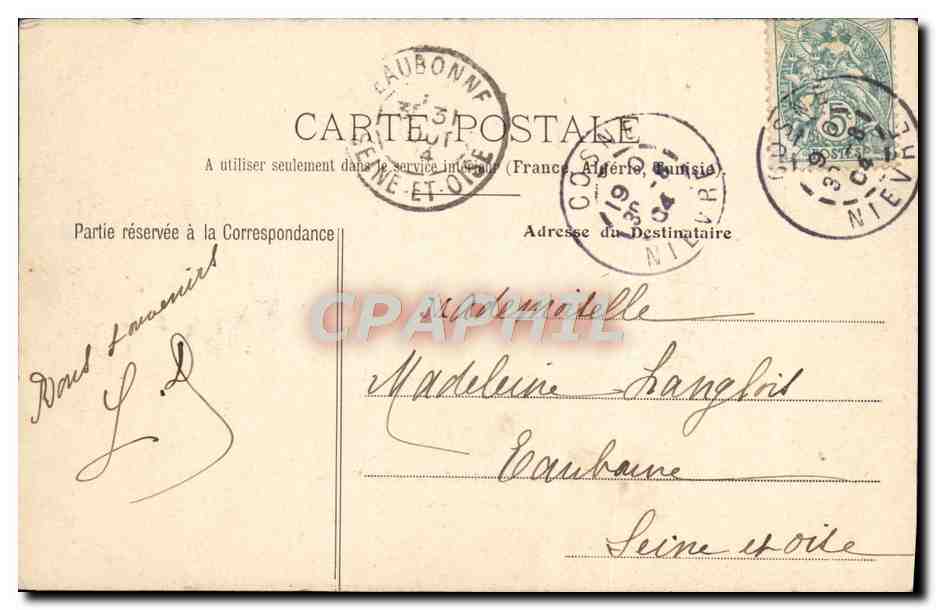 EAUBONNE
31
OCT
4
SEINE-ET-OISE
CARTE POSTALE
A utiliser seulement dans le service intérieur (France, Algérie, Tunisie).
COSNE
19 30
31 -10
04
NIEVRE
5
POSTES
COSNE
19 30
31 -10
04
NIEVRE
Partie réservée à la Correspondance
Adresse du Destinataire
Bons souvenirs
L.D
CPAPHIL
Mademoiselle
Madeleine Langlois
Eaubonne
Seine et oise